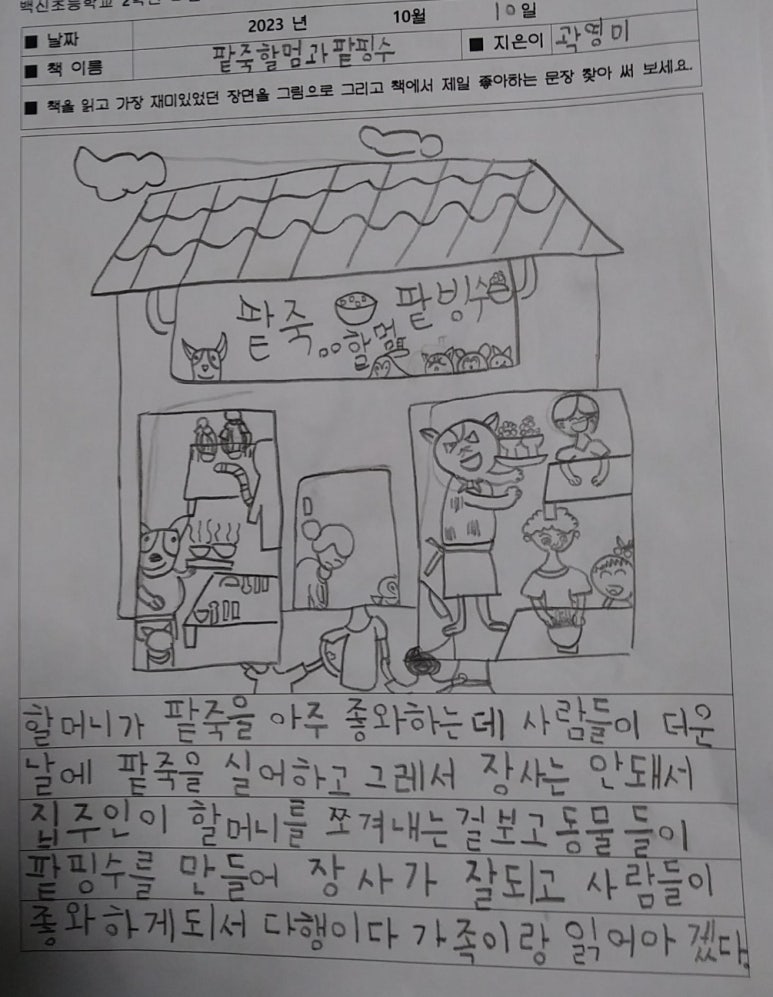 백신초등학교 2학년
■ 날짜 2023 년 10월 10일
■ 책 이름 팥죽할멈과 팥핑수 ■ 지은이 곽영미
■ 책을 읽고 가장 재미있었던 장면을 그림으로 그리고 책에서 제일 좋아하는 문장 찾아 써 보세요.
팥죽 팥빙수
할멈
할머니가 팥죽을 아주 좋와하는데 사람들이 더운
날에 팥죽을 실어하고 그레서 장사는 안돼서
집주인이 할머니를 쪼겨내는걸보고 동물들이
팥핑수를 만들어 장사가 잘되고 사람들이
좋와하게되서 다행이다 가족이랑 읽어야 겠다.